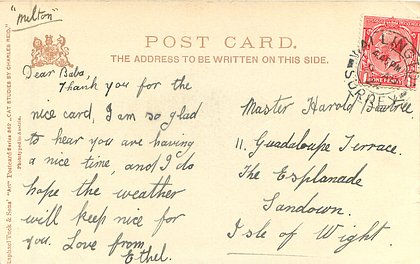 "Milton"
POST CARD.
THE ADDRESS TO BE WRITTEN ON THIS SIDE.
Dear Baba,
Thank you for the
nice card, I am so glad
to hear you are having
a nice time, and I do
hope the weather
will keep nice for
you. Love from
Ethel.
Master Harold
11. Guadaloupe Terrace.
The Esplanade
Sandown.
Isle of Wight.
Raphael Tuck & Sons' "Art" Postcard Series
"CAT STUDIES BY CHARLES REID."
SURREY